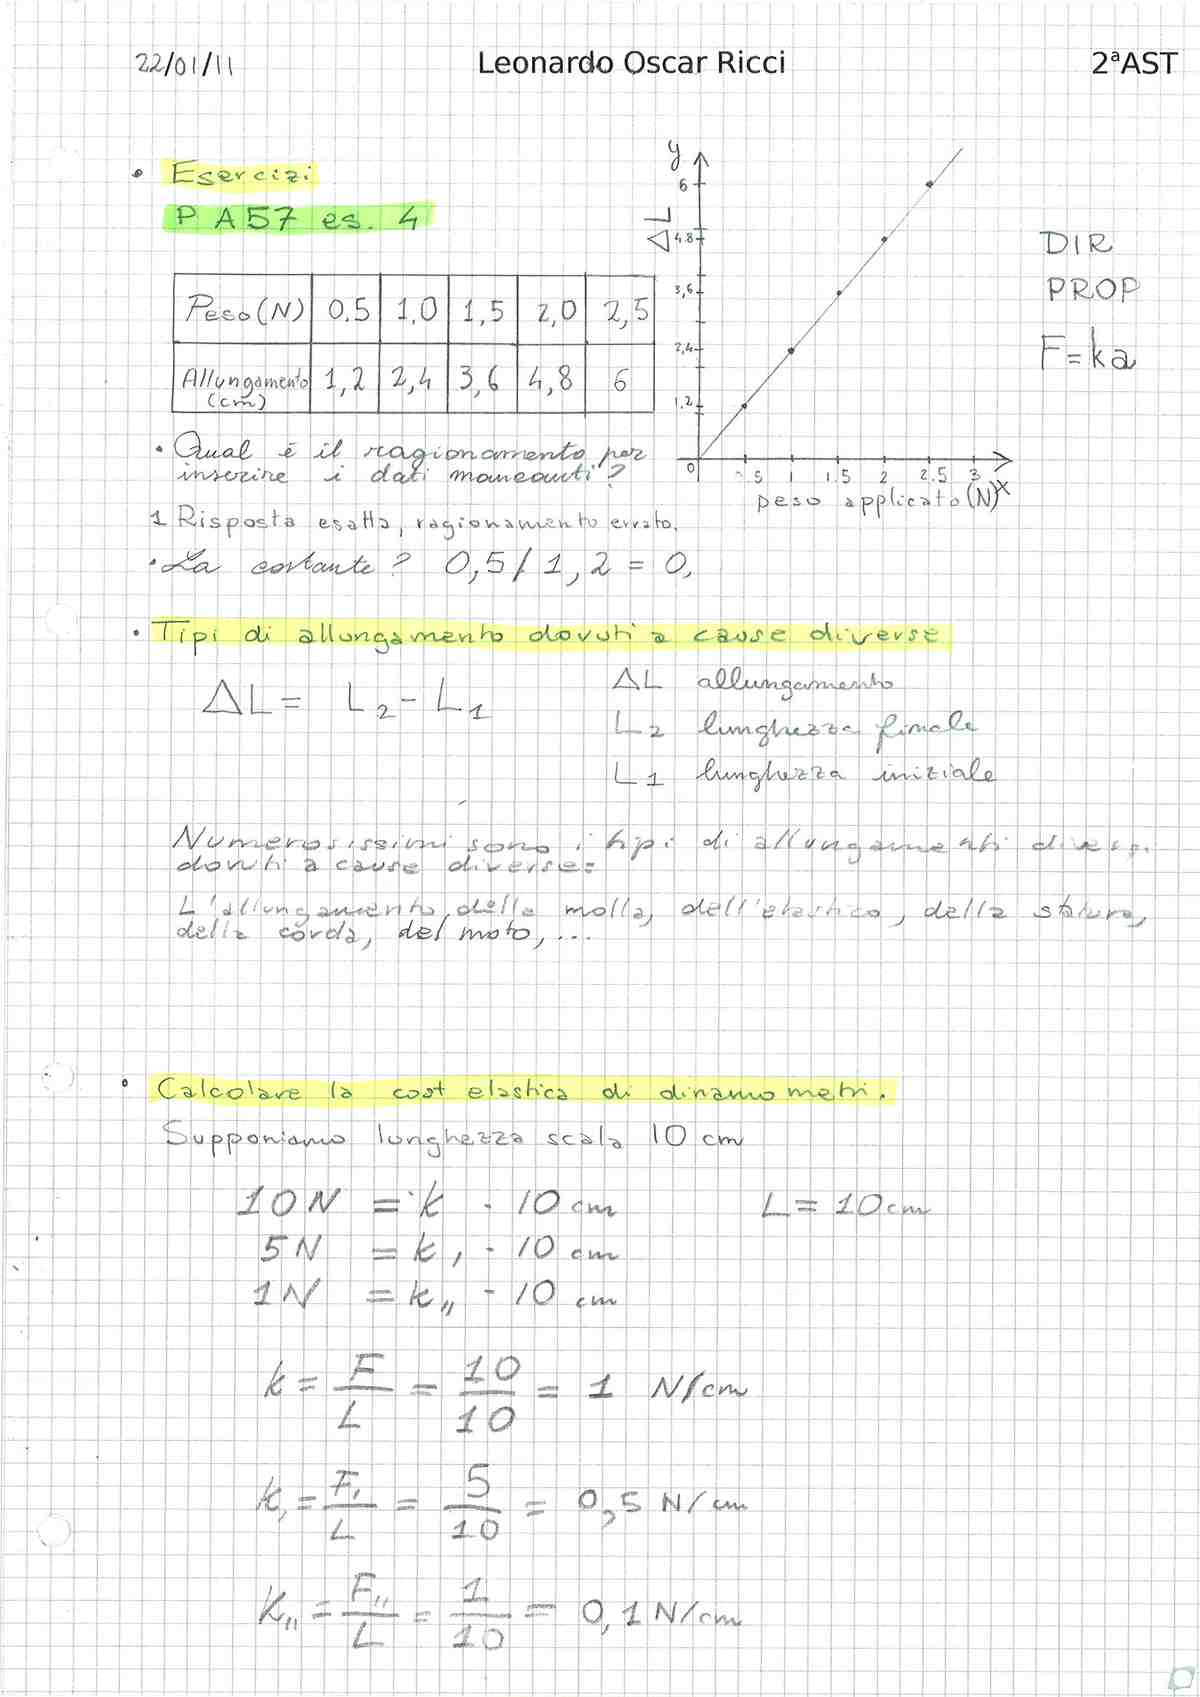 22/01/11 Leonardo Oscar Ricci 2ªAST
• Esercizi
P A57 es. 4
Peso(N) 0.5 1,0 1,5 2,0 2,5
Allungamento (cm) 1,2 2,4 3,6 4,8 6
y
6
ΔL 4.8
3,6
2,4
1,2
0 .5 1 1.5 2 2.5 3 x
peso applicato (N)
DIR
PROP
F=ka
• Qual è il ragionamento per
inserire i dati mancanti?
1 Risposta esatta, ragionamento errato.
• La costante? 0,5/1,2 = 0,
• Tipi di allungamento dovuti a cause diverse
ΔL = L2 - L1
ΔL allungamento
L2 lunghezza finale
L1 lunghezza iniziale
Numerosissimi sono i tipi di allungamenti diversi
dovuti a cause diverse:
L'allungamento della molla, dell'elastico, della statura,
della corda, del moto, ...
• Calcolare la cost elastica di dinamometri.
Supponiamo lunghezza scala 10 cm
10N = k · 10 cm L = 10cm
5N = k, · 10 cm
1N = k,, · 10 cm
k = F/L = 10/10 = 1 N/cm
k, = F,/L = 5/10 = 0,5 N/cm
K,, = F,,/L = 1/10 = 0,1 N/cm